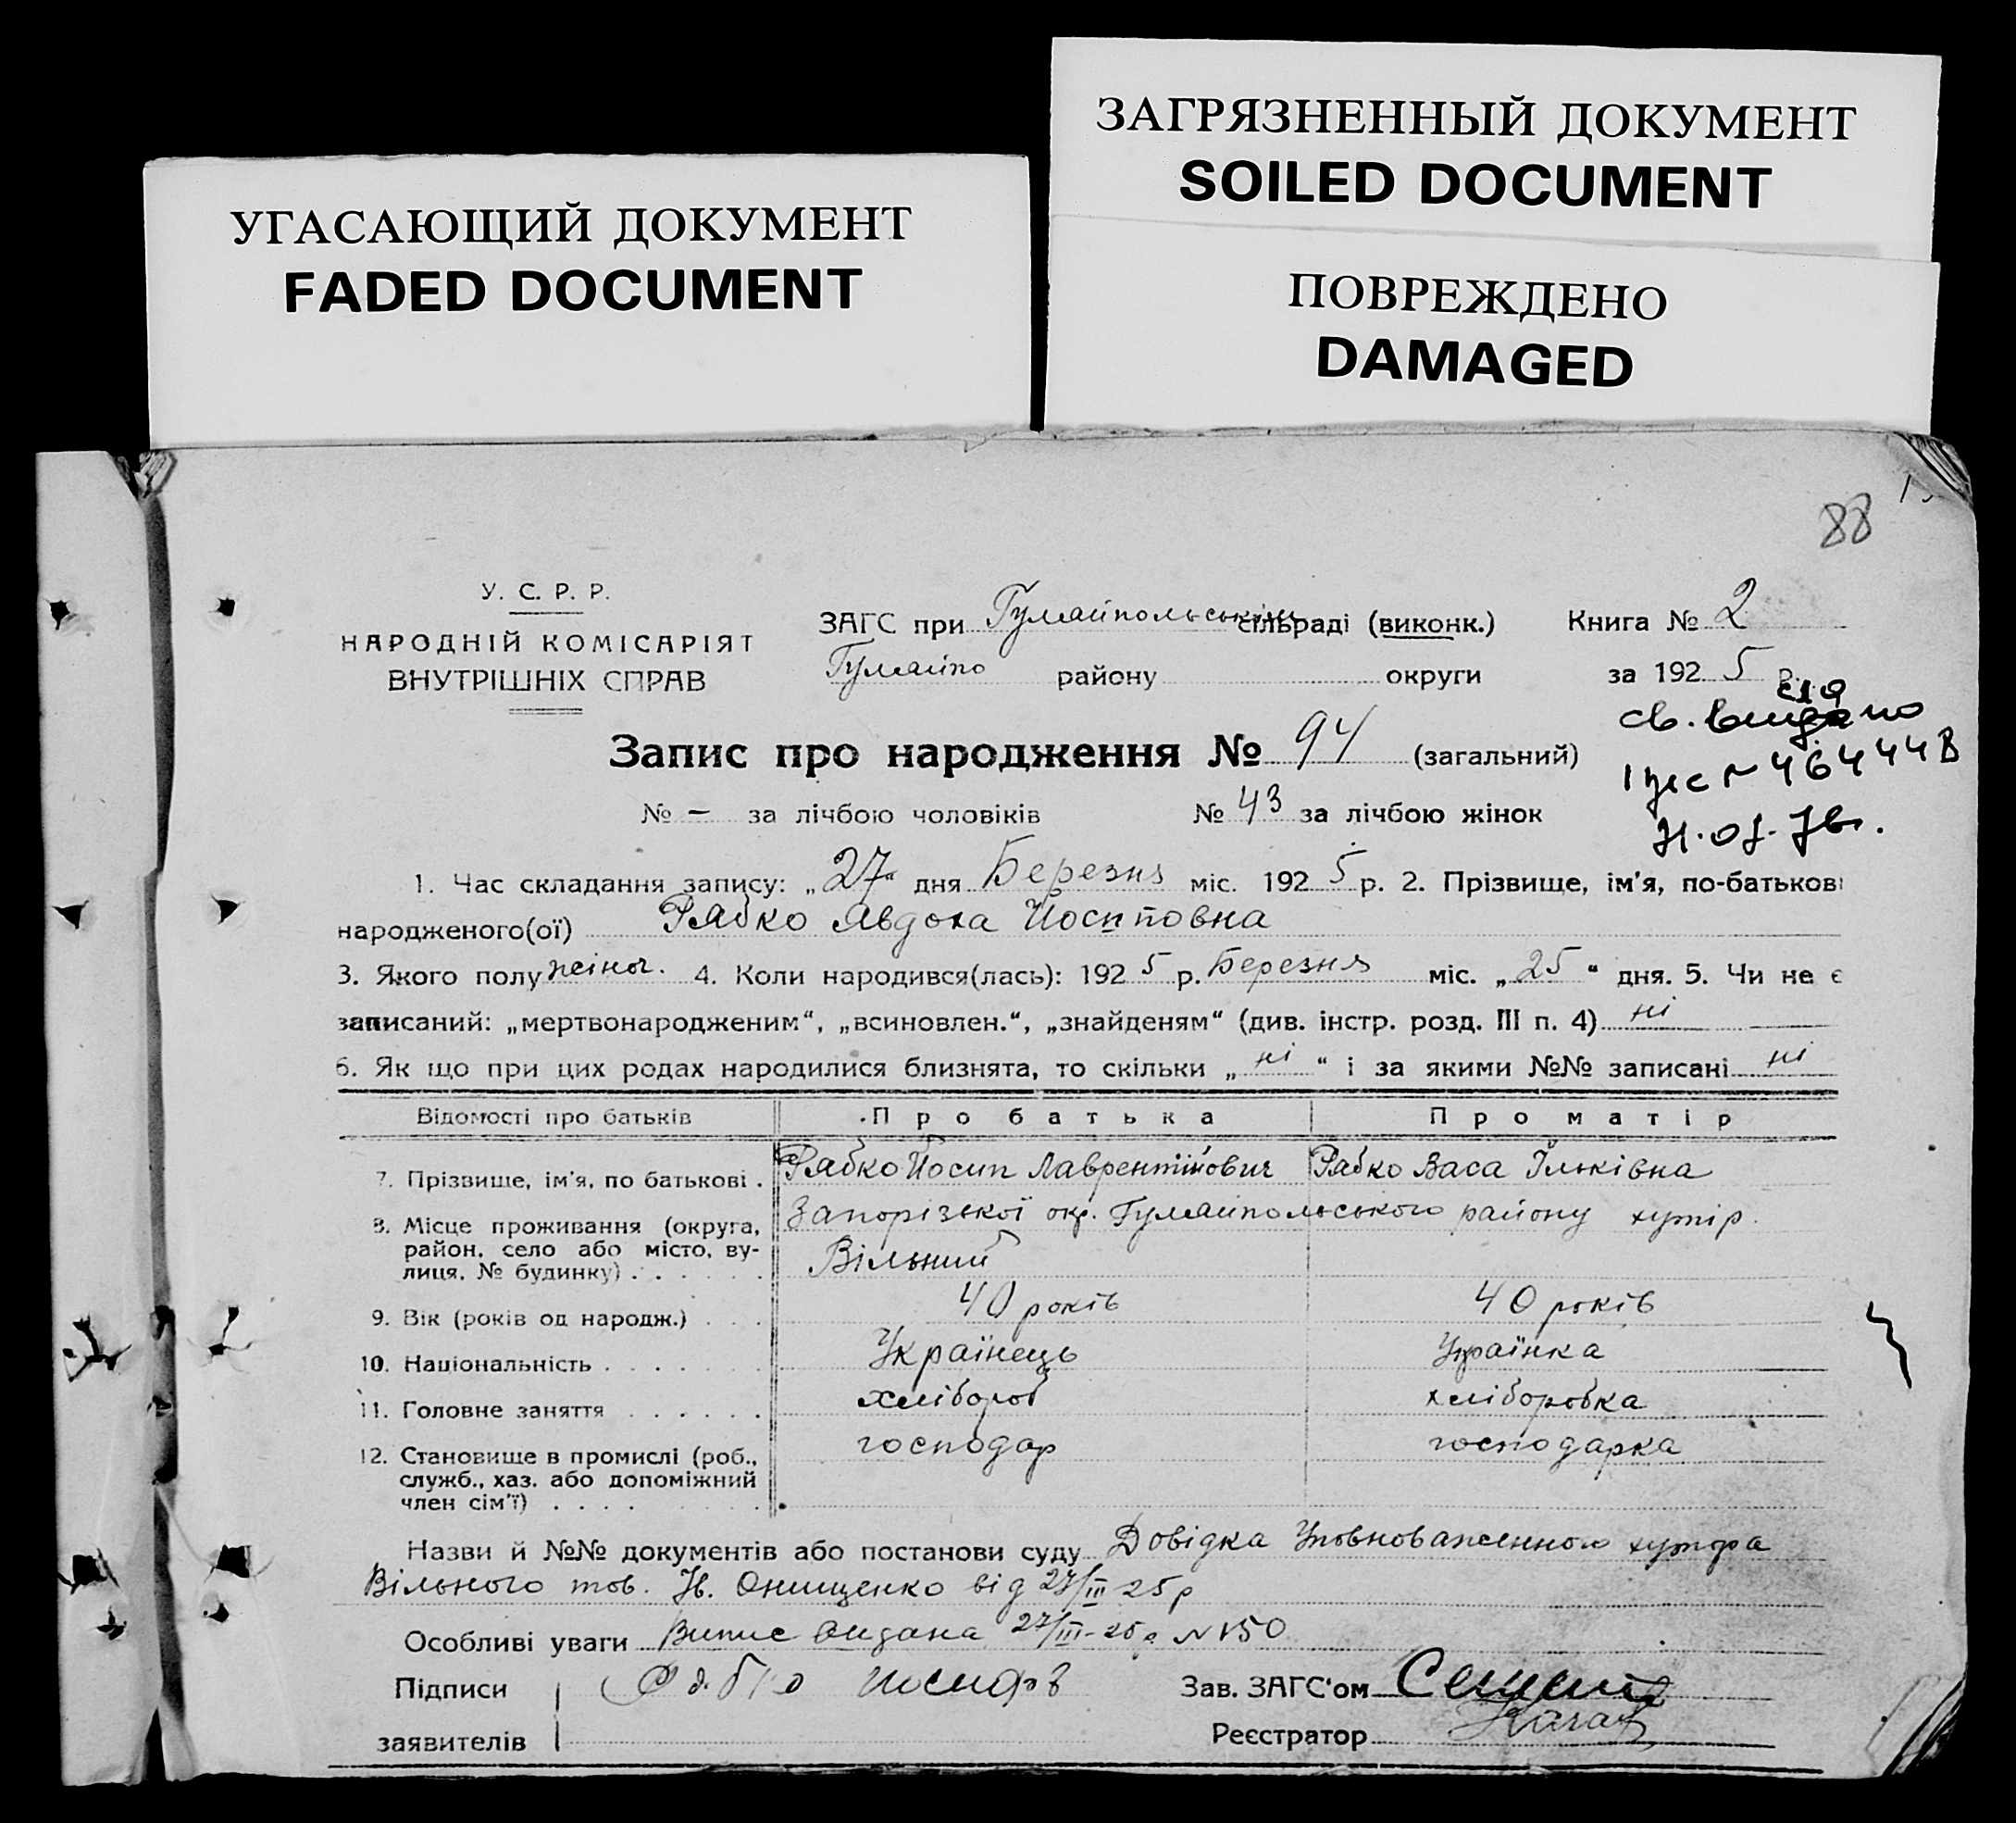 ЗАГРЯЗНЕННЫЙ ДОКУМЕНТ
SOILED DOCUMENT
УГАСАЮЩИЙ ДОКУМЕНТ
FADED DOCUMENT
ПОВРЕЖДЕНО
DAMAGED
88
У. С. Р. Р.
НАРОДНІЙ КОМІСАРІЯТ
ВНУТРІШНІХ СПРАВ
ЗАГС при Гуляйпольським сільраді (виконк.) Книга № 2
Гуляйпо району округи за 1925 р.
св. видано
Запис про народження № 94 (загальний)
№ – за лічбою чоловіків № 43 за лічбою жінок
1. Час складання запису: „27“ дня Березня міс. 1925 р. 2. Прізвище, ім'я, по-батькові
народженого(ої) Рябко Явдоха Йосиповна
3. Якого полу жіноч. 4. Коли народився(лась): 1925 р. Березня міс. „25“ дня. 5. Чи не є
записаний: „мертвонародженим“, „всиновлен.“, „знайденям“ (див. інстр. розд. III п. 4) ні
6. Як що при цих родах народилися близнята, то скільки „ні“ і за якими №№ записані ні
Відомості про батьків Про батька Про матір
7. Прізвище, ім'я, по батькові . Рябко Йосип Лаврентійович Рябко Васа Ільківна
8. Місце проживання (округа, район, село або місто, вулиця, № будинку) Запорізької окр. Гуляйпольського району хутір
Вільний
9. Вік (років од народж.) 40 років 40 років
10. Національність Українець Українка
11. Головне заняття хлібороб хліборобка
12. Становище в промислі (роб., господар господарка
служб., хаз. або допоміжний
член сім'ї)
Назви й №№ документів або постанови суду Довідка Уповноваженного хутора
Вільного тов. Ів. Онищенко від 27/III 25 р
Особливі уваги Випис видана 27/III-25 р № 150
Підписи Зав. ЗАГС'ом
заявителів Реєстратор